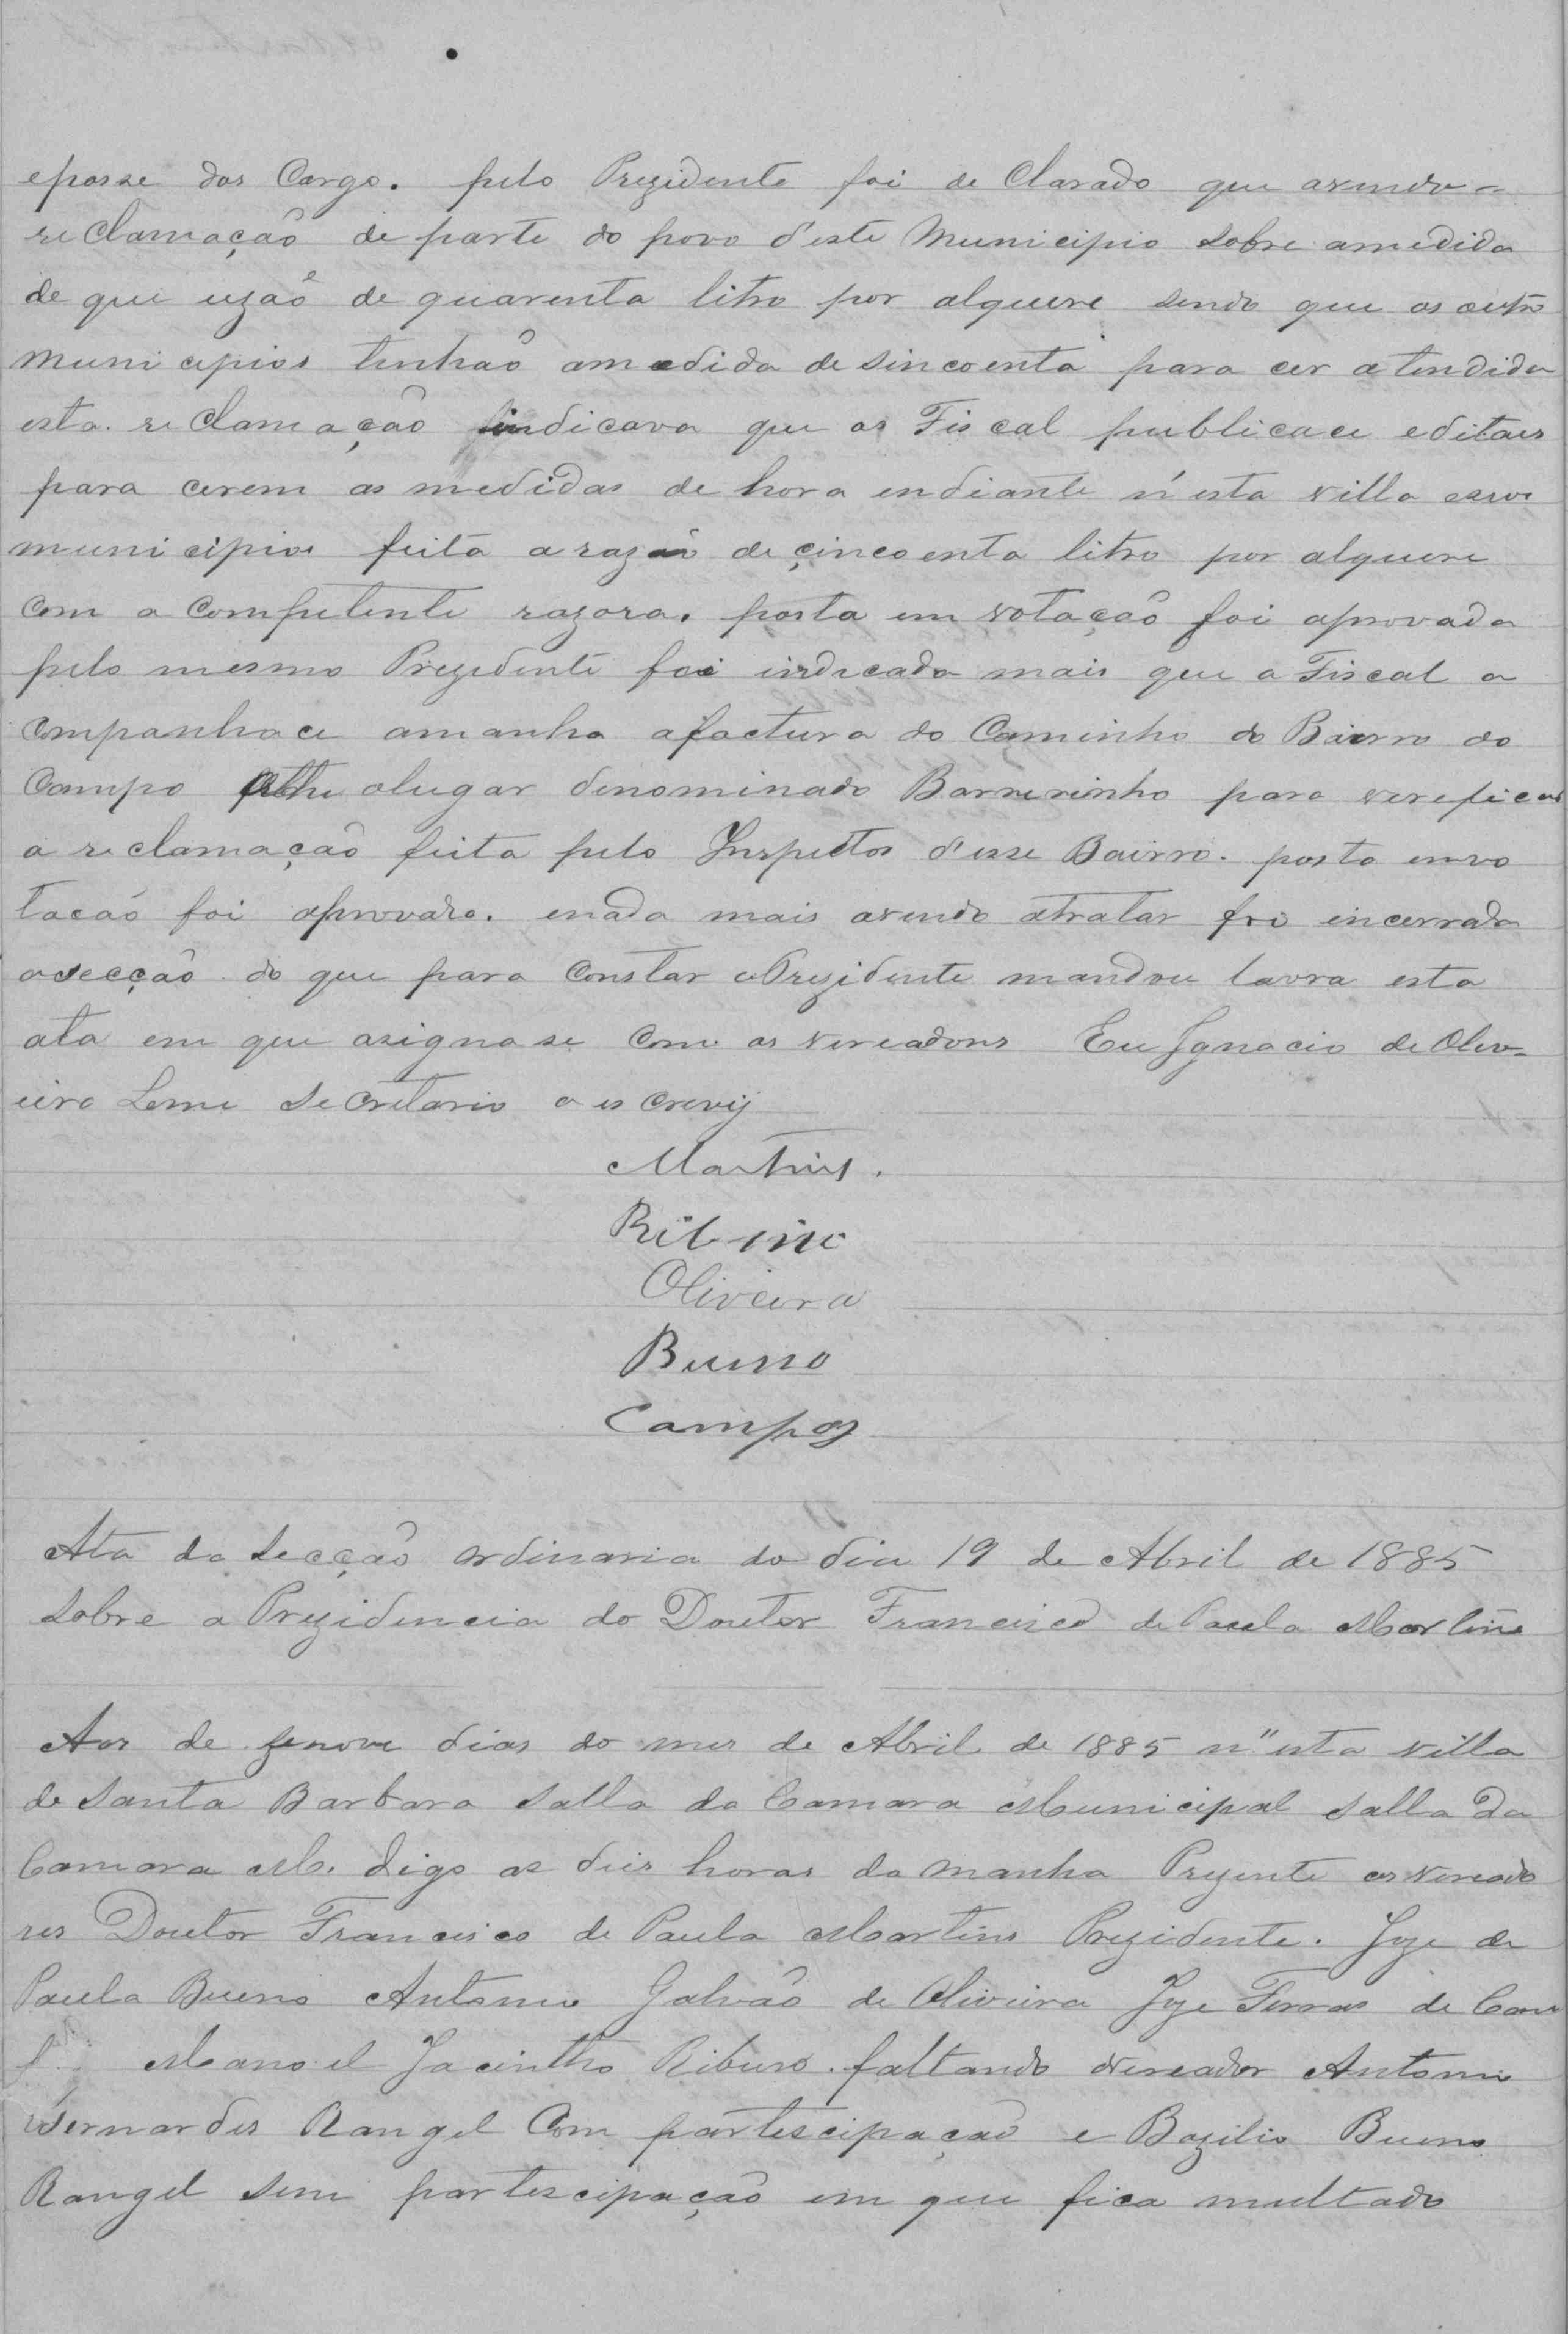 eposse dos Cargo. pelo Prezidente foi de Clarado que avendo
re Clamação de parte do povo d'este Municipio sobre amedida
de que uzão de quarenta litro por alquere sendo que os outro
Municipios tinhaõ amedida de sincoenta para cer atendida
esta re Clamação indicava que os Fiscal publicace editaes
para cerem as medidas de hora endiante n'esta villa eseos
municipios feita a razão de çincoenta litro por alquere
com a Competente razora. posta em votação foi aprovada
pelo mesmo Prezedente foi indicado mais que o Fiscal a
Companhace amanha afactura do Caminho do Bairro do
Campo athe olugar denominado Barrerinho para verificar
a reclamação feita pelo Inspector d'esse Bairro. posto envo
tacaõ foi aprovado. enada mais avendo atratar foi encerrada
asecção do que para Constar oPrezidente mandou lavra esta
ata em que asigna se Com os vereadores Eu Ignacio de Oliv=
eira Leme Secretario o es crevij
Martins.
Ribeiro
Oliveira
Bueno
Campos
Ata da Secção Ordinaria do dia 19 de Abril de 1885
Sobre a Prezidencia do Doutor Francisco de Paula Martins
Aos de zenove dias do mes de Abril de 1885 n"esta villa
de Santa Barbara Salla da Camara Municipal Salla Da
Camara M. digo as deis horas da manha Prezente osvereado
res Doutor Francisco de Paula Martins Prezidente. Joze de
Paula Bueno Antonio Galvão de Oliveira Joze Ferras de Cam
Manoel Jacintho Ribeiro. faltando overeador Antonio
Bernardes Rangel Com partescipação e Bazilio Bueno
Rangel sem partescipação em que fica multado